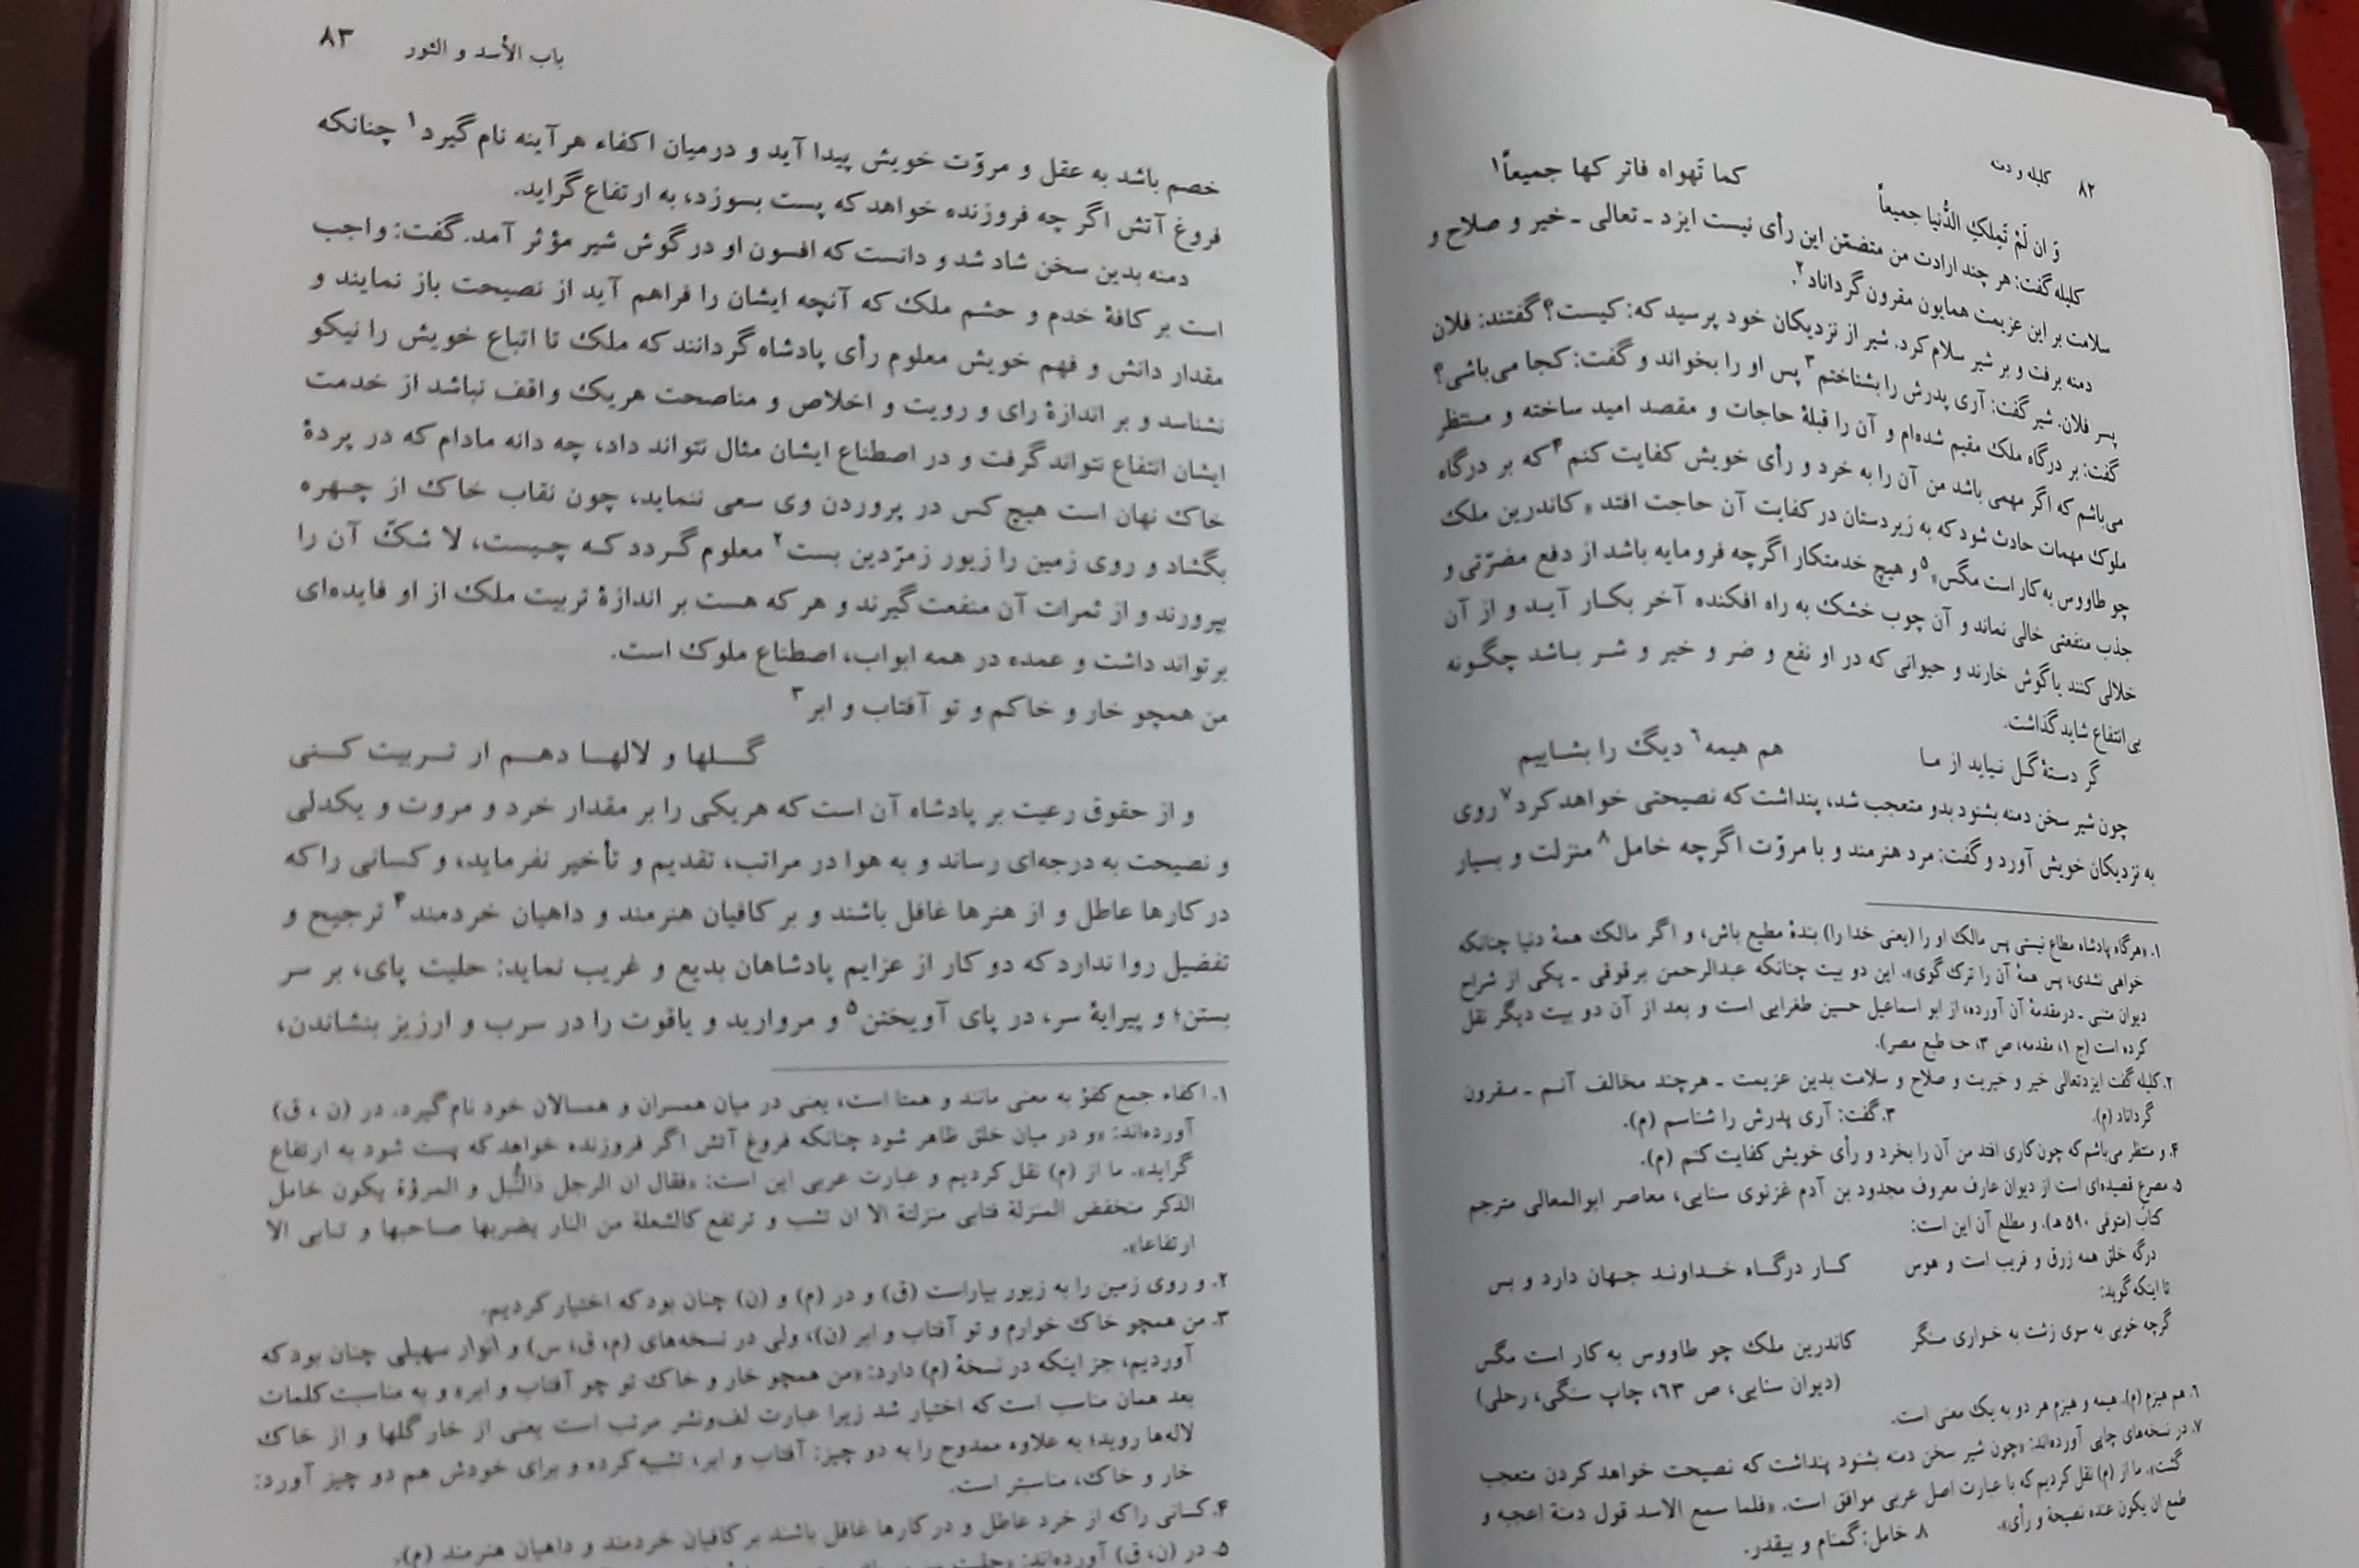 ۸۲ کلیله و دمنه
وَ ان لَمْ تَملِكِ الدُّنیا جمیعاً کما تَهواه فاتر کها جمیعاً۱
کلیله گفت: هر چند ارادت من متضمّن این رأی نیست ایزد ـ تعالی ـ خیر و صلاح و
سلامت بر این عزیمت همایون مقرون گرداناد۲.
دمنه برفت و بر شیر سلام کرد. شیر از نزدیکان خود پرسید که: کیست؟ گفتند: فلان
پسر فلان. شیر گفت: آری پدرش را بشناختم۳ پس او را بخواند و گفت: کجا می‌باشی؟
گفت: بر درگاه ملک مقیم شده‌ام و آن را قبلهٔ حاجات و مقصد امید ساخته و منتظر
می‌باشم که اگر مهمی باشد من آن را به خرد و رأی خویش کفایت کنم۴ که بر درگاه
ملوک مهمات حادث شود که به زیردستان در کفایت آن حاجت افتد «کاندرین ملک
چو طاووس به کار است مگس»۵ و هیچ خدمتکار اگرچه فرومایه باشد از دفع مضرّتی و
جذب منفعتی خالی نماند و آن چوب خشک به راه افکنده آخر بکار آید و از آن
خلالی کنند یا گوش خارند و حیوانی که در او نفع و ضر و خیر و شر باشد چگونه
بی انتفاع شاید گذاشت.
گر دستهٔ گل نیاید از ما هم هیمه۶ دیگ را بشاییم
چون شیر سخن دمنه بشنود بدو متعجب شد، پنداشت که نصیحتی خواهد کرد۷ روی
به نزدیکان خویش آورد و گفت: مرد هنرمند و با مروّت اگرچه خامل۸ منزلت و بسیار
۱. «هرگاه پادشاه مطاع نیستی پس مالک او را (یعنی خدا را) بندهٔ مطیع باش، و اگر مالک همهٔ دنیا چنانکه
خواهی نشدی، پس همهٔ آن را ترک گوی». این دو بیت چنانکه عبدالرحمن برقوقی ـ یکی از شراح
دیوان متنبی ـ در مقدمهٔ آن آورده، از ابو اسماعیل حسین طغرایی است و بعد از آن دو بیت دیگر نقل
کرده است (ج ۱، مقدمه، ص ۳، حـ، طبع مصر).
۲. کلیله گفت ایزدتعالی خیر و خیریت و صلاح و سلامت بدین عزیمت ـ هرچند مخالف آنم ـ مقرون
گرداناد (م). ۳. گفت: آری پدرش را شناسم (م).
۴. و منتظر می‌باشم که چون کاری افتد من آن را بخرد و رأی خویش کفایت کنم (م).
۵. مصرع قصیده‌ای است از دیوان عارف معروف مجدود بن آدم غزنوی سنایی، معاصر ابوالمعالی مترجم
کتاب (متوفی ۵۹۰ هـ). و مطلع آن این است:
درگه خلق همه زرق و فریب است و هوس کار درگاه خداوند جهان دارد و بس
تا اینکه گوید:
گرچه خوبی به سوی زشت به خواری منگر کاندرین ملک چو طاووس به کار است مگس
(دیوان سنایی، ص ۶۳، چاپ سنگی، رحلی)
۶. هم هیزم (م). هیمه و هیزم هر دو به یک معنی است.
۷. در نسخه‌های چاپی آورده‌اند: «چون شیر سخن دمنه بشنود پنداشت که نصیحت خواهد کردن متعجب
گشت». ما از (م) نقل کردیم که با عبارت اصل عربی موافق است. «فلما سمع الاسد قول دمنة اعجبه و
طمع ان یکون عنده نصیحة و رأی». ۸. خامل: گمنام و بیقدر.
باب الأسد و الثور ۸۳
خصم باشد به عقل و مروّت خویش پیدا آید و درمیان اکفاء هرآینه نام گیرد۱ چنانکه
فروغ آتش اگر چه فروزنده خواهد که پست بسوزد، به ارتفاع گراید.
دمنه بدین سخن شاد شد و دانست که افسون او در گوش شیر مؤثر آمد. گفت: واجب
است بر کافهٔ خدم و حشم ملک که آنچه ایشان را فراهم آید از نصیحت باز نمایند و
مقدار دانش و فهم خویش معلوم رأی پادشاه گردانند که ملک تا اتباع خویش را نیکو
نشناسد و بر اندازهٔ رای و رویت و اخلاص و مناصحت هریک واقف نباشد از خدمت
ایشان انتفاع نتواند گرفت و در اصطناع ایشان مثال نتواند داد، چه دانه مادام که در پردهٔ
خاک نهان است هیچ کس در پروردن وی سعی ننماید، چون نقاب خاک از چهره
بگشاد و روی زمین را زیور زمرّدین بست۲ معلوم گردد که چیست، لا شکّ آن را
بپرورند و از ثمرات آن منفعت گیرند و هر که هست بر اندازهٔ تربیت ملک از او فایده‌ای
برتواند داشت و عمده در همه ابواب، اصطناع ملوک است.
من همچو خار و خاکم و تو آفتاب و ابر۳
گلها و لالها دهم ار تربیت کنی
و از حقوق رعیت بر پادشاه آن است که هریکی را بر مقدار خرد و مروت و یکدلی
و نصیحت به درجه‌ای رساند و به هوا در مراتب، تقدیم و تأخیر نفرماید، و کسانی را که
در کارها عاطل و از هنرها غافل باشند و بر کافیان هنرمند و داهیان خردمند۴ ترجیح و
تفضیل روا ندارد که دو کار از عزایم پادشاهان بدیع و غریب نماید: حلیت پای، بر سر
بستن؛ و پیرایهٔ سر، در پای آویختن۵ و مروارید و یاقوت را در سرب و ارزیز بنشاندن،
۱. اکفاء جمع کفؤ به معنی مانند و همتا است، یعنی در میان همسران و همسالان خود نام گیرد. در (ن ، ق)
آورده‌اند: «و در میان خلق ظاهر شود چنانکه فروغ آتش اگر فروزنده خواهد که پست شود به ارتفاع
گراید». ما از (م) نقل کردیم و عبارت عربی این است: «فقال ان الرجل ذالنُّبل و المروّة یکون خامل
الذکر منخفض المنزلة فتابی منزلتة الا ان تشب و ترتفع کالشعلة من النار یضربها صاحبها و تابی الا
ارتفاعا».
۲. و روی زمین را به زیور بیاراست (ق) و در (م) و (ن) چنان بود که اختیار کردیم.
۳. من همچو خاک خوارم و تو آفتاب و ابر (ن)، ولی در نسخه‌های (م، ق، س) و انوار سهیلی چنان بود که
آوردیم، جز اینکه در نسخهٔ (م) دارد: «من همچو خار و خاک تو چو آفتاب و ابر» و به مناسبت کلمات
بعد همان مناسب است که اختیار شد زیرا عبارت لف‌ونشر مرتب است یعنی از خار گلها و از خاک
لاله‌ها روید؛ به علاوه ممدوح را به دو چیز: آفتاب و ابر، تشبیه کرده و برای خودش هم دو چیز آورد:
خار و خاک، مناسبتر است.
۴. کسانی را که از خرد عاطل و در کارها غافل باشند بر کافیان خردمند و داهیان هنرمند (م).
۵. در (ن، ق) آورده‌اند: «حلیت